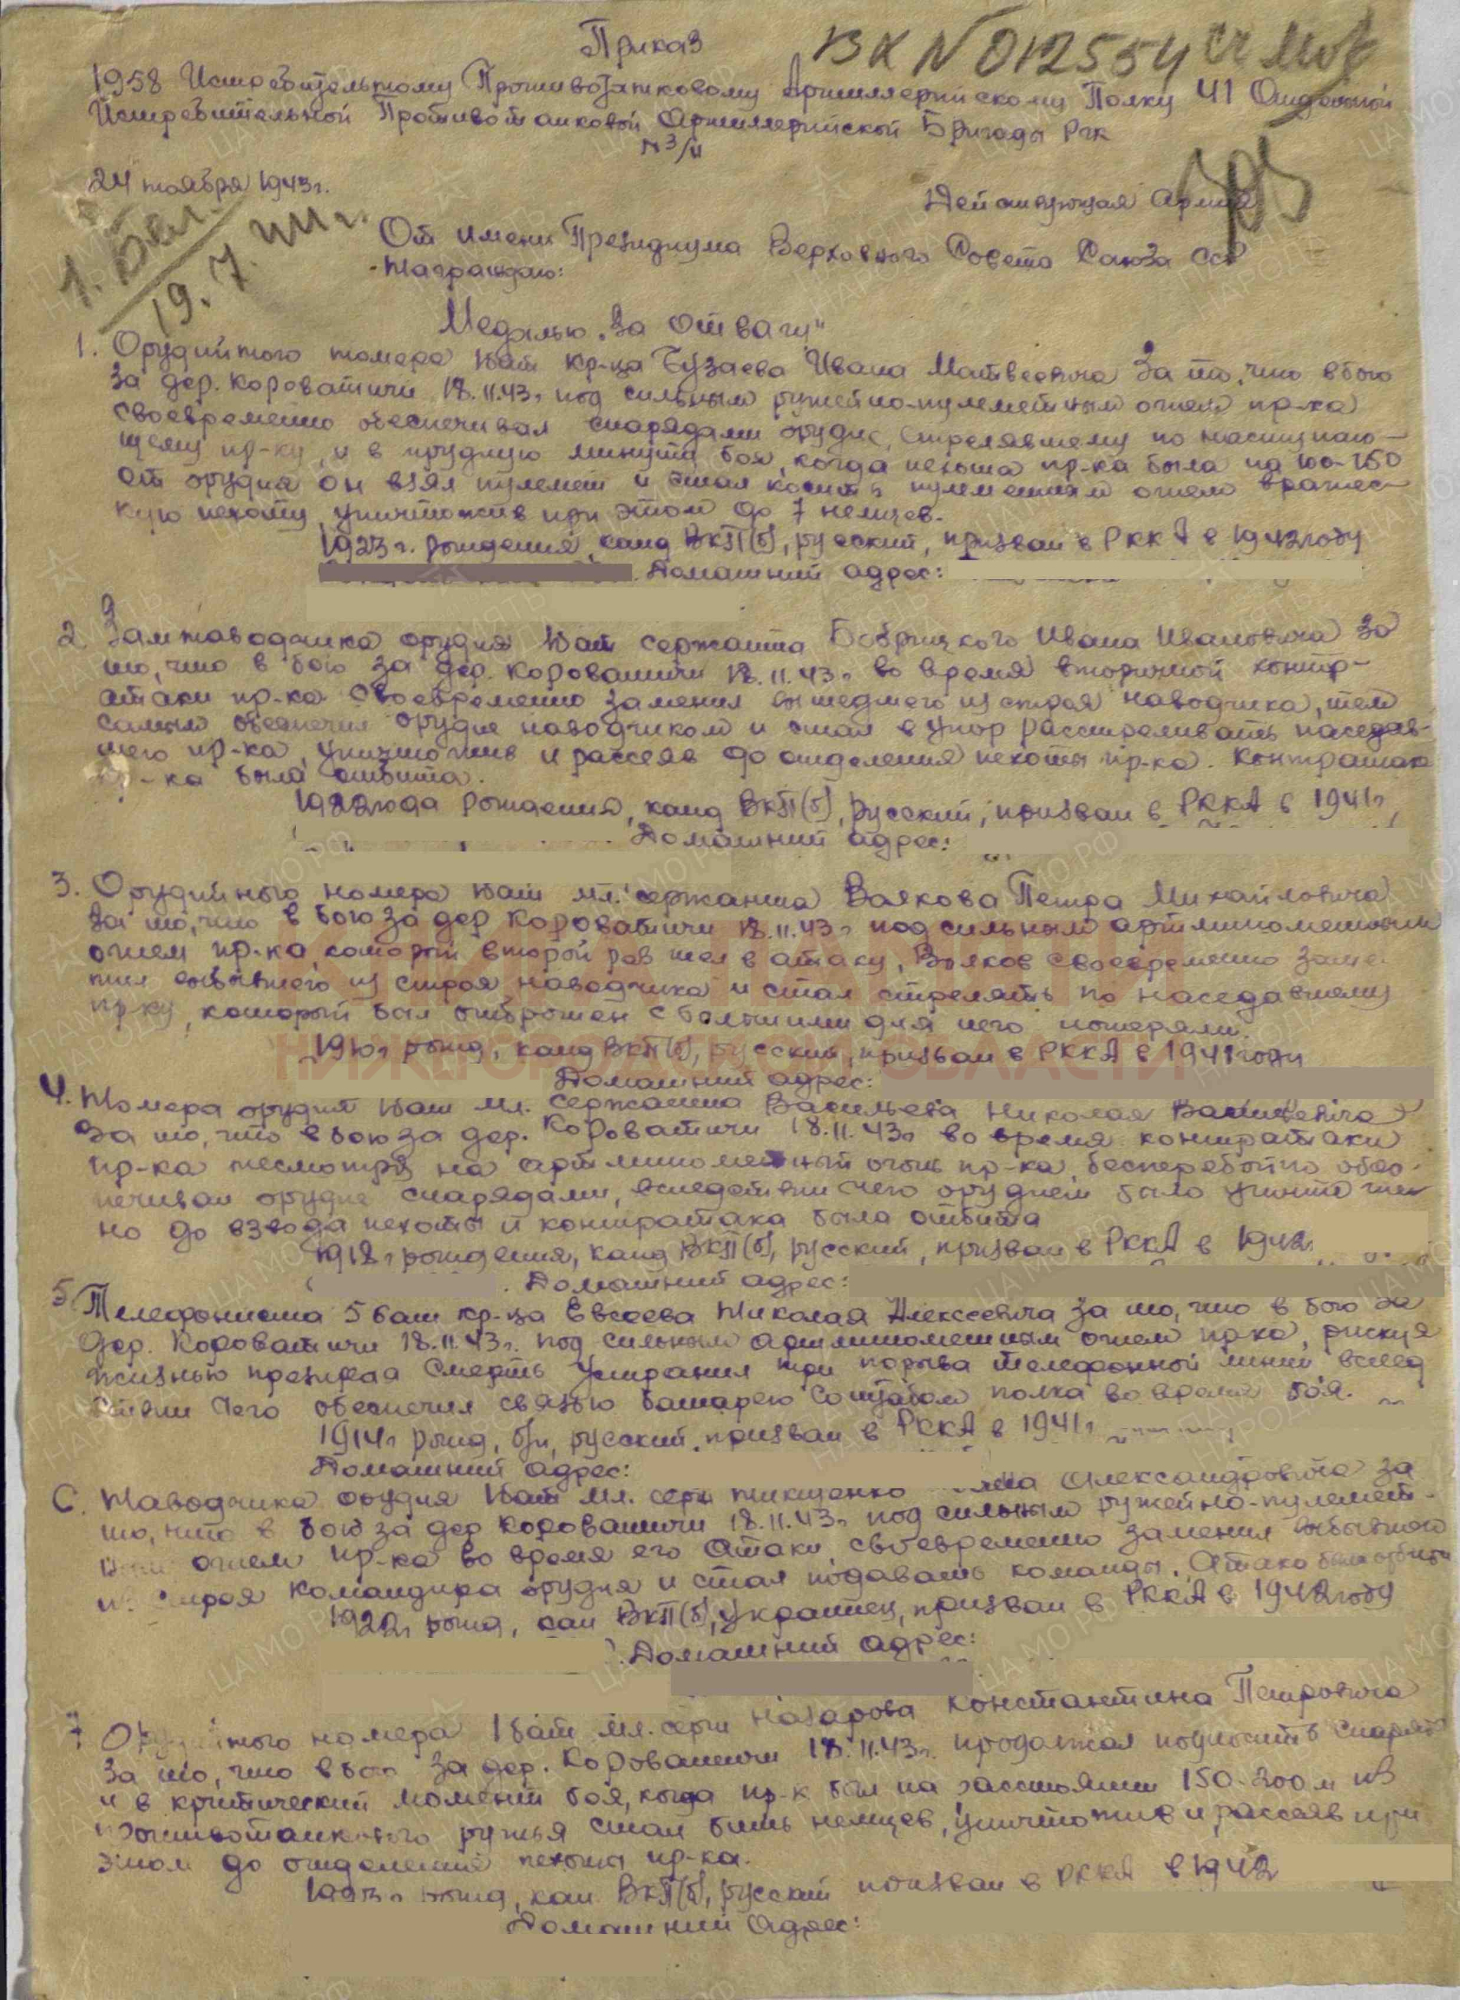 Приказ
ВК N 012554
1958 Истребительному Противотанковому Артиллерийскому Полку 41 Отдельной
Истребительной Противотанковой Артиллерийской Бригады РГК
N 3/н
24 ноября 1943г.
Действующая Армия
1. Бел.
19.7.
От имени Президиума Верховного Совета Союза ССР
Награждаю:
Медалью "За Отвагу"
1. Орудийного номера 1 бат кр-ца Бузаева Ивана Матвеевича За то, что в бою
за дер. Короватичи 18.11.43г под сильным ружейно-пулеметным огнем пр-ка
своевременно обеспечивал снарядами орудие, стрелявшему по наступаю-
щему пр-ку, и в трудную минуту боя, когда пехота пр-ка была на 100-150
от орудия он взял пулемет и стал косить пулеметным огнем вражес-
кую пехоту, уничтожив при этом до 7 немцев.
1923г. рождения, канд ВКП(б), русский, призван в РККА в 1942 году
Домашний адрес:
2. Зам наводчика орудия 1 бат сержанта Бобрицкого Ивана Ивановича За
то, что в бою за дер. Короватичи 18.11.43г во время вторичной контр-
атаки пр-ка Своевременно заменил вышедшего из строя наводчика, тем
самым обеспечил орудие наводчиком и стал в упор расстреливать наседав-
шего пр-ка, уничтожив и рассеяв до отделения пехоты пр-ка. Контратака
пр-ка была отбита.
1922 года рождения, канд ВКП(б), русский, призван в РККА в 1941г,
Домашний адрес:
3. Орудийного номера 1 бат мл. сержанта Волкова Петра Михайловича
За то, что в бою за дер Короватичи 18.11.43г под сильным артминометным
огнем пр-ка, который второй раз шел в атаку, Волков своевременно заме-
нил выбывшего из строя наводчика и стал стрелять по наседавшему
пр-ку, который был отброшен с большими для него потерями.
1910г рожд, канд ВКП(б), русский, призван в РККА в 1941 году
Домашний адрес:
4. Номера орудия 1 бат мл. сержанта Васильева Николая Васильевича
За то, что в бою за дер. Короватичи 18.11.43г во время контратаки
пр-ка несмотря на артминометный огонь пр-ка, бесперебойно обес-
печивал орудие снарядами, вследствии чего орудием было уничтоже-
но до взвода пехоты и контратака была отбита
1918г рождения, канд ВКП(б), русский, призван в РККА в 1942г
Домашний адрес:
5. Телефониста 5 бат кр-ца Евсеева Николая Алексеевича За то, что в бою за
дер. Короватичи 18.11.43г. под сильным артминометным огнем пр-ка, рискуя
жизнью презирая Смерть устранил три порыва телефонной линии вслед
ствии чего обеспечил связью батарею со штабом полка во время боя.
1914г рожд, б/п, русский, призван в РККА в 1941г
Домашний адрес:
6. Наводчика орудия 1 бат мл. серж Никитенко Александровича за
то, что в бою за дер Короватичи 18.11.43г под сильным ружейно-пулемет-
ным огнем пр-ка во время его Атаки, своевременно заменил выбывшего
из строя командира орудия и стал подавать команды. Атака была отбита
1922г рожд, кан ВКП(б), украинец, призван в РККА в 1942 году
Домашний адрес:
7 Орудийного номера 1 бат мл. серж Назарова Константина Петровича
За то, что в бою за дер. Короватичи 18.11.43г. продолжал подносить снаряды
и в критический момент боя, когда пр-к был на расстоянии 150-200м из
противотанкового ружья стал бить немцев, уничтожив и рассеяв при
этом до отделения пехоты пр-ка.
1923г рожд, кан ВКП(б), русский призван в РККА в 1942
Домашний Адрес:
КНИГА ПАМЯТИ
НИЖЕГОРОДСКОЙ ОБЛАСТИ